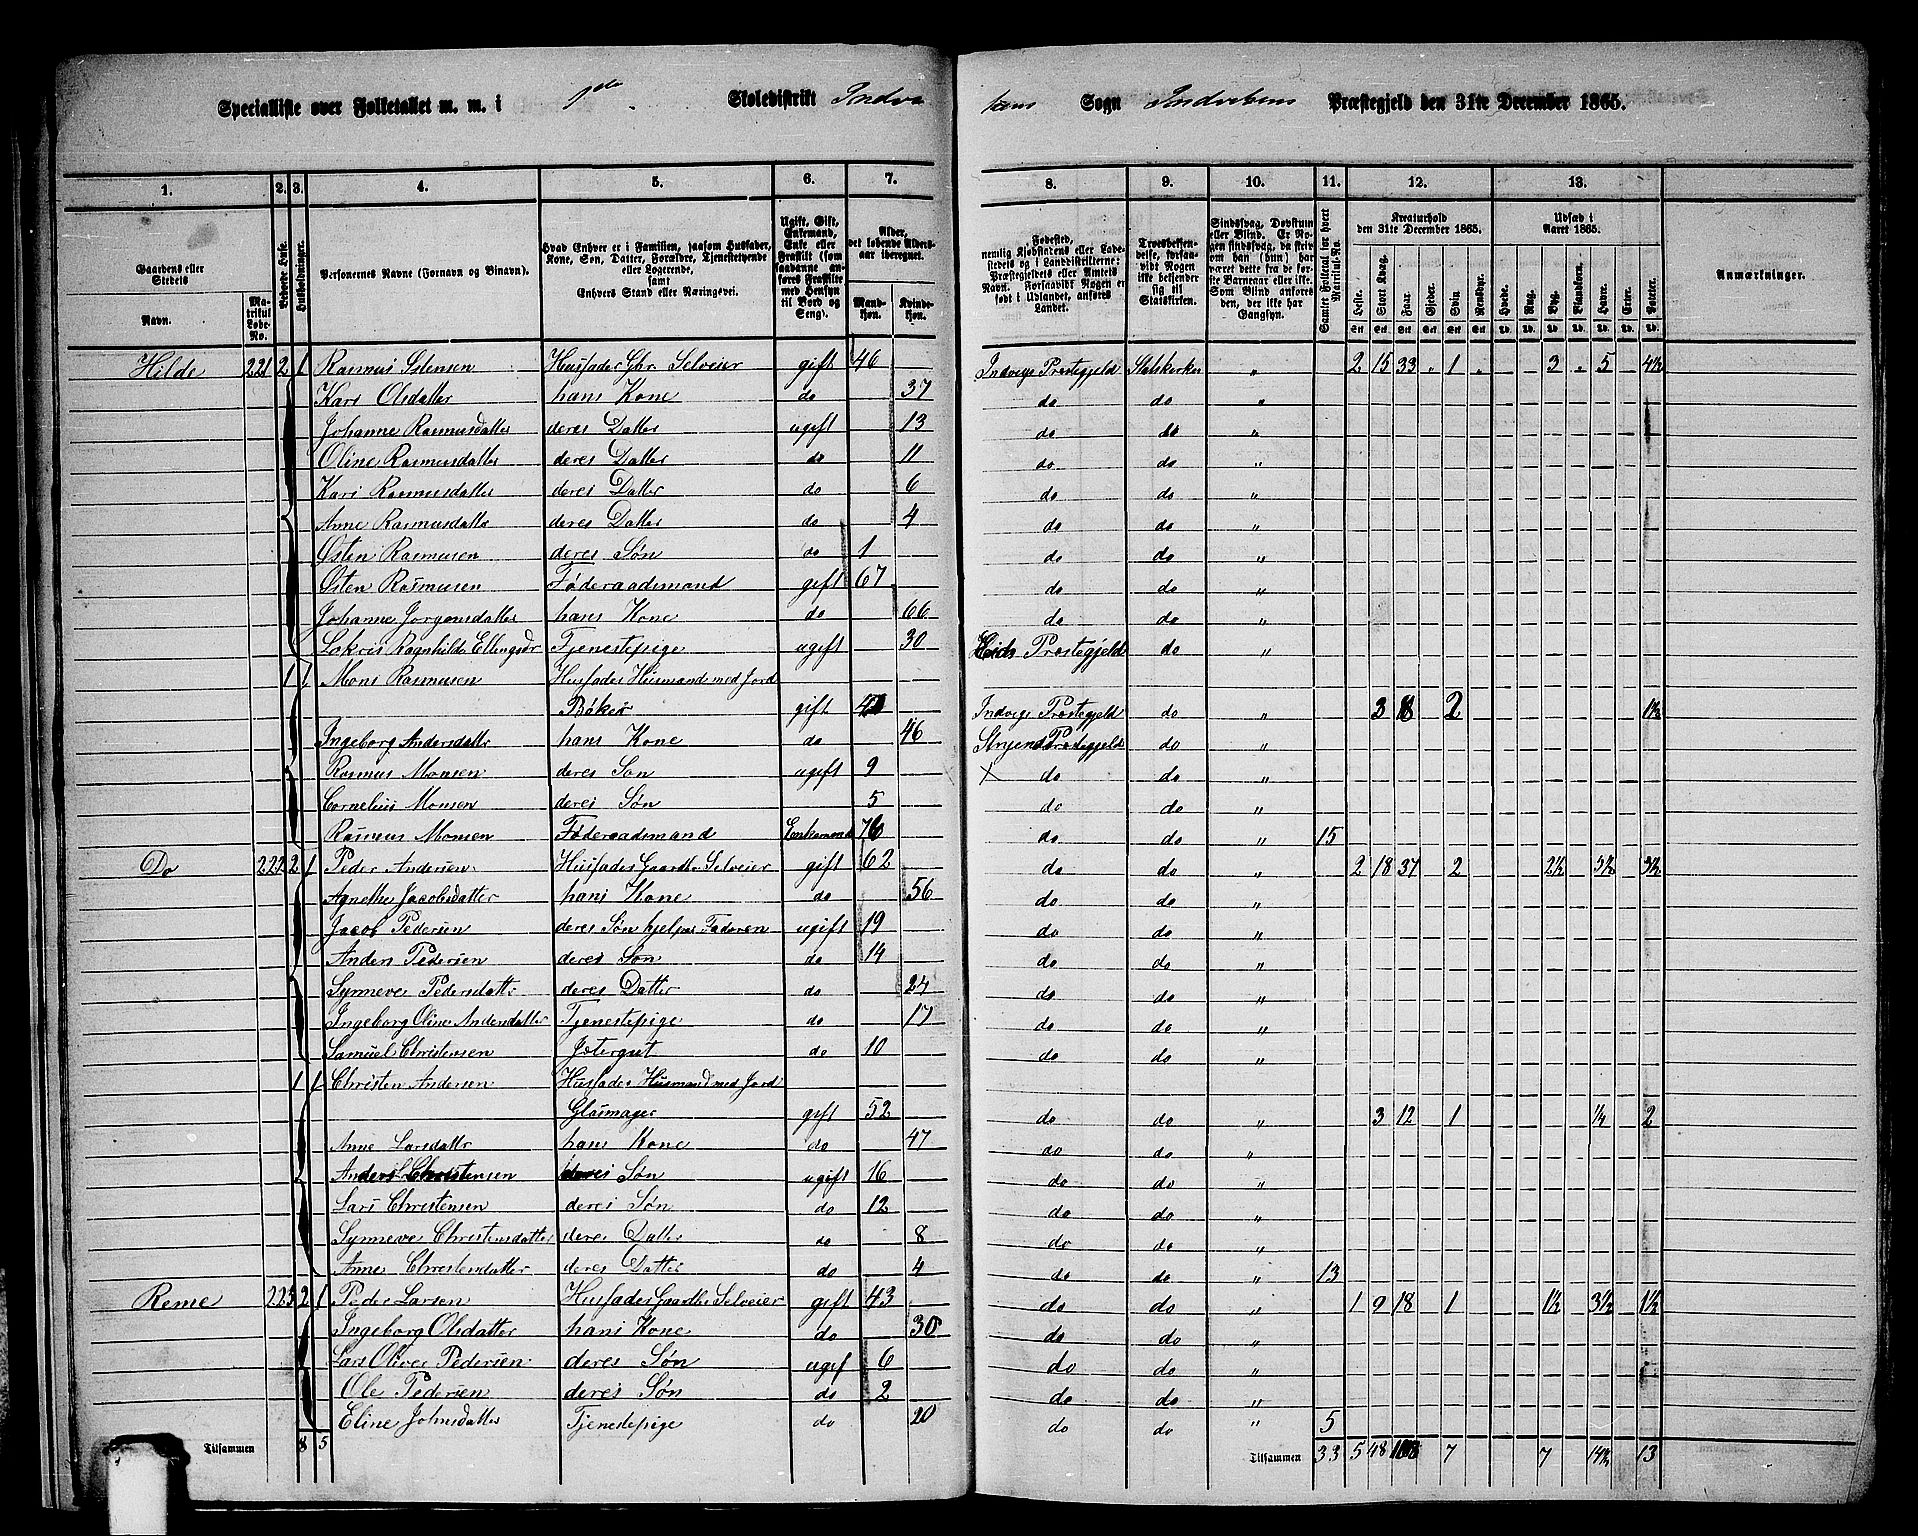 Specialliste over Folketallet m. m. i 1ste Skoledistrikt Indvikens Sogn Indvikens Præstegjeld den 31te December 1865.
1. 2. 3. 4. 5. 6. 7. 8. 9. 10. 11. 12. 13.
Gaardens eller Stedets Navn. Matrikul Løbe-No. Beboede Huse. Husholdninger. Personernes Navne (Fornavn og Binavn). Hvad Enhver er i Familien, saasom Husfader, Kone, Søn, Datter, Forældre, Tjenestetyende eller Logerende, samt Enhvers Stand eller Næringsvei. Ugift, Gift, Enkemand, Enke eller Fraskilt (som saadanne anføres Fraskilte med Hensyn til Bord og Seng). Alder, det løbende Aldersaar iberegnet. Mandkøn. Kvindekøn.
Fødested, nemlig Kjøbstadens eller Ladestedets og i Landdistrikterne: Præstegjeldets eller Amtets Navn. Forsaavidt Nogen er født i Udlandet, anføres Landet. Troesbekjendelse, forsaavidt Nogen ikke bekjender sig til Statskirken. Sindssvag, Døvstum eller Blind. Er Nogen sindssvag, da skriv om han (hun) har været dette fra de første Barneaar eller ikke. Som Blind anføres den, der ikke har Gangsyn. Samlet Folketal for hvert Matrikul-No. Kreaturhold den 31te December 1865. Heste. Stort Kvæg. Faar. Gjeder. Svin. Rensdyr. Udsæd i Aaret 1865. Hvede. Rug. Byg. Blandkorn. Havre. Erter. Poteter. Anmærkninger.
Hilde 221 2 1 Rasmus Østensen Husfader Gbr. Selveier gift 46 Indvigs Præstegjeld Statskirken " 2 15 33 " 1 " 3 " 5 4½
Kari Olsdatter hans Kone do 37 do do "
Johanne Rasmusdatter deres Datter ugift 13 do do "
Oline Rasmusdatter deres Datter do 11 do do "
Kari Rasmusdatter deres Datter do 6 do do "
Anne Rasmusdatter deres Datter do 4 do do "
Østen Rasmusen deres Søn do 1 do do "
Østen Rasmusen Føderaadsmand gift 67 do do "
Johanne Jørgensdatter hans Kone do 66 do do "
Ragnhilde Ellingsdr Tjenestepige ugift 30 Præstegjeld do "
1 1 Mons Rasmusen Husfader Husmand med Jord
Bøker gift Indvigs Præstegjeld do " 3 2 1½
Ingeborg Andersdatter hans Kone do 46 Stryens Præstegjeld do "
Rasmus Monsen deres Søn ugift 9 X do do "
Cornelius Monsen deres Søn 5 do do "
Rasmus Monsen Føderaadsmand Enkemand 76 do do " 15
Do 222 2 1 Peder Andersen Husfader Gaardbr Selveier gift 62 do do " 2 18 37 2 2½ 5½ 3½
Agnethe Jacobsdatter hans Kone do 56 do do "
Jacob Pedersen deres Søn hjelper Faderen ugift 19 do do "
Anders Pedersen deres Søn do 14 do do "
Synneve Pedersdatter deres Datter do 24 do do "
Ingeborg Oline Andersdatter Tjenestepige do 17 do do "
Samuel Christensen Jætergut do 10 do do "
1 1 Christen Andersen Husfader Husmand med Jord
Glasmager gift 52 do do " 3 12 1 ¼ 2
Anne Larsdatter hans Kone do 47 do do "
Anders Christensen deres Søn ugift 16 do do "
Lars Christensen deres Søn do 12 do do "
Synneve Christensdatter deres Datter do 8 do do "
Anne Christensdatter deres Datter do 4 do do " 13
Reme 223 2 1 Peder Larsen Husfader Gaardbr Selveier gift 43 do do " 1 9 18 1 1½ 3½ 1½
Ingeborg Olsdatter hans Kone do 30 do do "
Lars Oliver Pedersen deres Søn ugift 6 do do "
Ole Pedersen deres Søn do 2 do do "
Eline Johnsdatter Tjenestepige do 20 do do " 5
Tilsammen 8 5 Tilsammen 33 5 48 7 7 14¼ 13